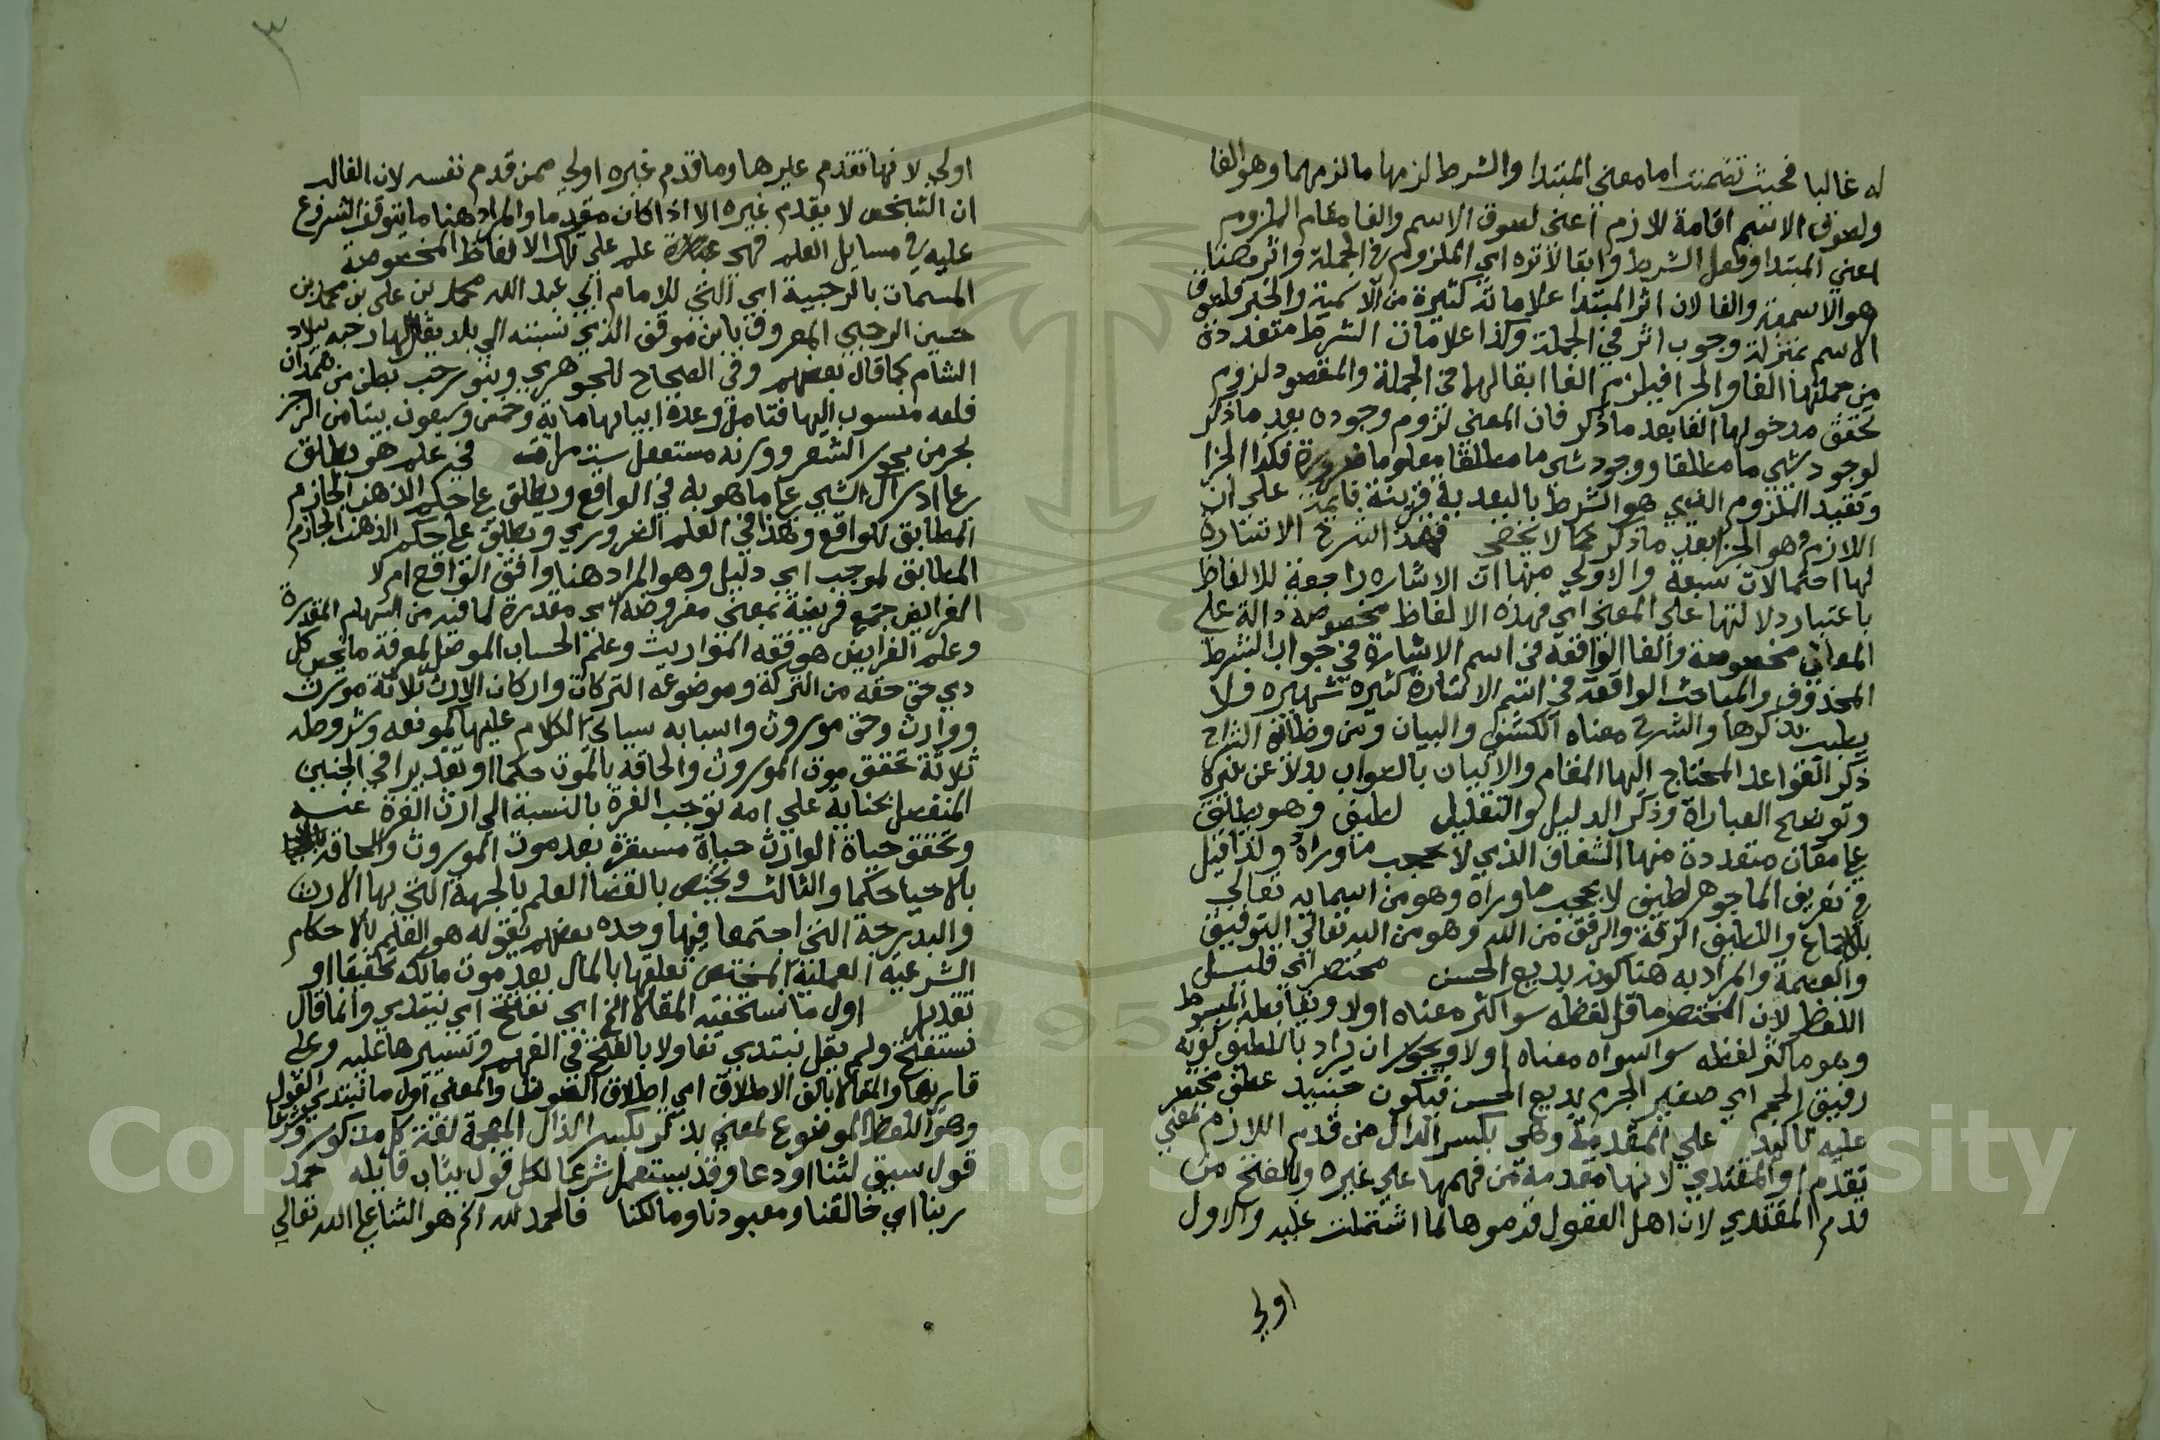 له غالبا فحيث تضمنت اما معني المبتدا والشرط لزمها ما لزمهما وهو الفا
ولصوق الاسم اقامة للازم اعني لصوق الاسم والفا مقام الملزوم
اعني المبتدا وفعل الشرط وابقا لاثره اي الملزوم في الجملة واثر هنا
هو الاسمية والفا لان اثر المبتدا علاماته كثيرة من الاسمية والخبر فلصوق
الاسم بمنزلة وجوب اثر في الجملة وكذا علامات الشرط متعددة
من جملتها الفا والجزا فيلزم الفا ابقا لها في الجملة والمقصود لزوم
تحقق مدخولها الفا بعد ما ذكر فان المعني لزوم وجوده بعد ما ذكر
لوجود شي ما مطلقا ووجود شي ما مطلقا معلوما ضرورة فكذا الجزا
وتقييد الملزوم الذي هو الشرط بالبعدية قرينة قايمة علي ان
اللازم وهو الجزا بعد ما ذكر كما لا يخفي فهذا الشرح الاشارة
لها احتمالات سبعة والاولي منها ان الاشاره راجعة للالفاظ
باعتبار دلالتها علي المعني اي فهذه الالفاظ مخصوصة دالة علي
المعاني مخصوصة والفا الواقعة في اسم الاشارة في جواب الشرط
المحذوف والمباحث الواقعة في اسم الاشارة كثيرة شهيره فلا
يطيب بذكرها والشرح معناه الكشف والبيان ومن وظائف الشراح
ذكر القواعد المحتاج اليها المقام والاتيان بالصواب بدلا عن غيره
وتوضيح العباراة وذكر الدليل والتعليل لطيف وهو يطلق
علي معان متعددة منها الشفاف الذي لا يحجب ما وراه ولذا قيل
في تعريف الما جوهر لطيف لا يحجب ما وراه وهو من اسمايه تعالي
بالاجماع واللطيف الرقة والرفق من الله وهو من الله تعالي التوفيق
والعصمة والمراد به هنا كونه بديع الحسن مختصر اي قليل
اللفظ لان المختصر ما قل لفظه سوا كثر معناه اولا ويقابله المبسوط
وهو ما كثر لفظه سوا سواه معناه اولا ويجوز ان يراد باللطيف كونه
رقيق الحجم اي صغير الجرم بديع الحسن فيكون حينيد عطف مختصر
عليه تاكيد علي المقدمة وهي بكسر الدال من قدم اللازم بمعني
تقدم او المتعدي لانها مقدمة من فهمها علي غيره وبالفتح من
قدم المتعدي لان اهل العقول قدموها لما اشتملت عليه والاول
اولي
اولي لانها تقدم عليرها وما قدم غيره اولي ممن قدم نفسه لان الغالب
ان الشخص لا يقدم غيره الا اذا كان مقدما والمراد هنا ما يتوقف الشروع
عليه في مسايل العلم فهي علم علي تلك الالفاظ المخصوصة
المسمات بالرحبية اي التي للامام ابي عبد الله محمد بن علي بن محمد بن
حسين الرحبي المعروف بابن موقق الذي نسبته الي بلد يقال لها رحبه ببلاد
الشام كما قال بعضهم وفي الصحاح للجوهري وبنو رحب بطن من همدان
فلعه منسوب اليها فتامل وعدة ابياتها ماية وخمس وسبعون بيتا من الرجز
بحر من بحور الشعر ووزنه مستفعلن ست مرات في علم هو يطلق
علي ادراك الشي علي ما هو به في الواقع ويطلق علي حكم الذهن الجازم
المطابق للواقع وهذا في العلم الضروري ويطلق علي حكم الذهن الجازم
المطابق لموجب اي دليل وهو المراد هنا وافق الواقع ام لا
الفرايض جمع فريضة بمعني مفروضة اي مقدرة لما فيه من السهام المقدرة
وعلم الفرايض هو فقه المواريث وعلم الحساب الموصل لمعرفة ما يخص كل
دي حق حقه من التركة وموضوعه التركات واركان الارث ثلاثة مورث
ووارث وحق موروث واسبابه سياتي الكلام عليها كموانعه وشروطه
ثلاثة تحقق موت الموروث والحاقه بالموت حكما او تقديرا في الجنين
المنفصل بجناية علي امه توجب الغرة بالنسبة الي ارث الغرة عنه
وتحقق حياة الوارث حياة مستقرة بعد موت الموروث والحاقه
بالاحيا حكما والثالث ويختص بالقضا العلم بالجهة التي بها الارث
والدرجة التي اجتمعا فيها وحده بعضهم بقوله هو العلم بالاحكام
الشرعية العملية المختص تعلقها بالمال بعد موت مالكه تحقيقا او
تقديرا اول ما نستفتح المقالا الخ اي نفتتح اي نبتدي وانما قال
نستفتح ولم يقل نبتدي تفاولا بالفتح في الفهم وتيسيرها عليه وعلي
قاريها والمقالا بالف الاطلاق اي اطلاق الصوت والمعني اول ما نبتدي القول
وهو اللفظ الموضوع لمعني بذكر بكسر الذال المعجمة لغة كل مذكور وشرعا
قول سيق لثنا او دعا وقد يستعمل شرعا لكل قول يثاب قايله حمد
ربنا اي خالقنا ومعبودنا ومالكنا فالحمد لله الخ هو الثنا علي الله تعالي
Copyright © King Saud University